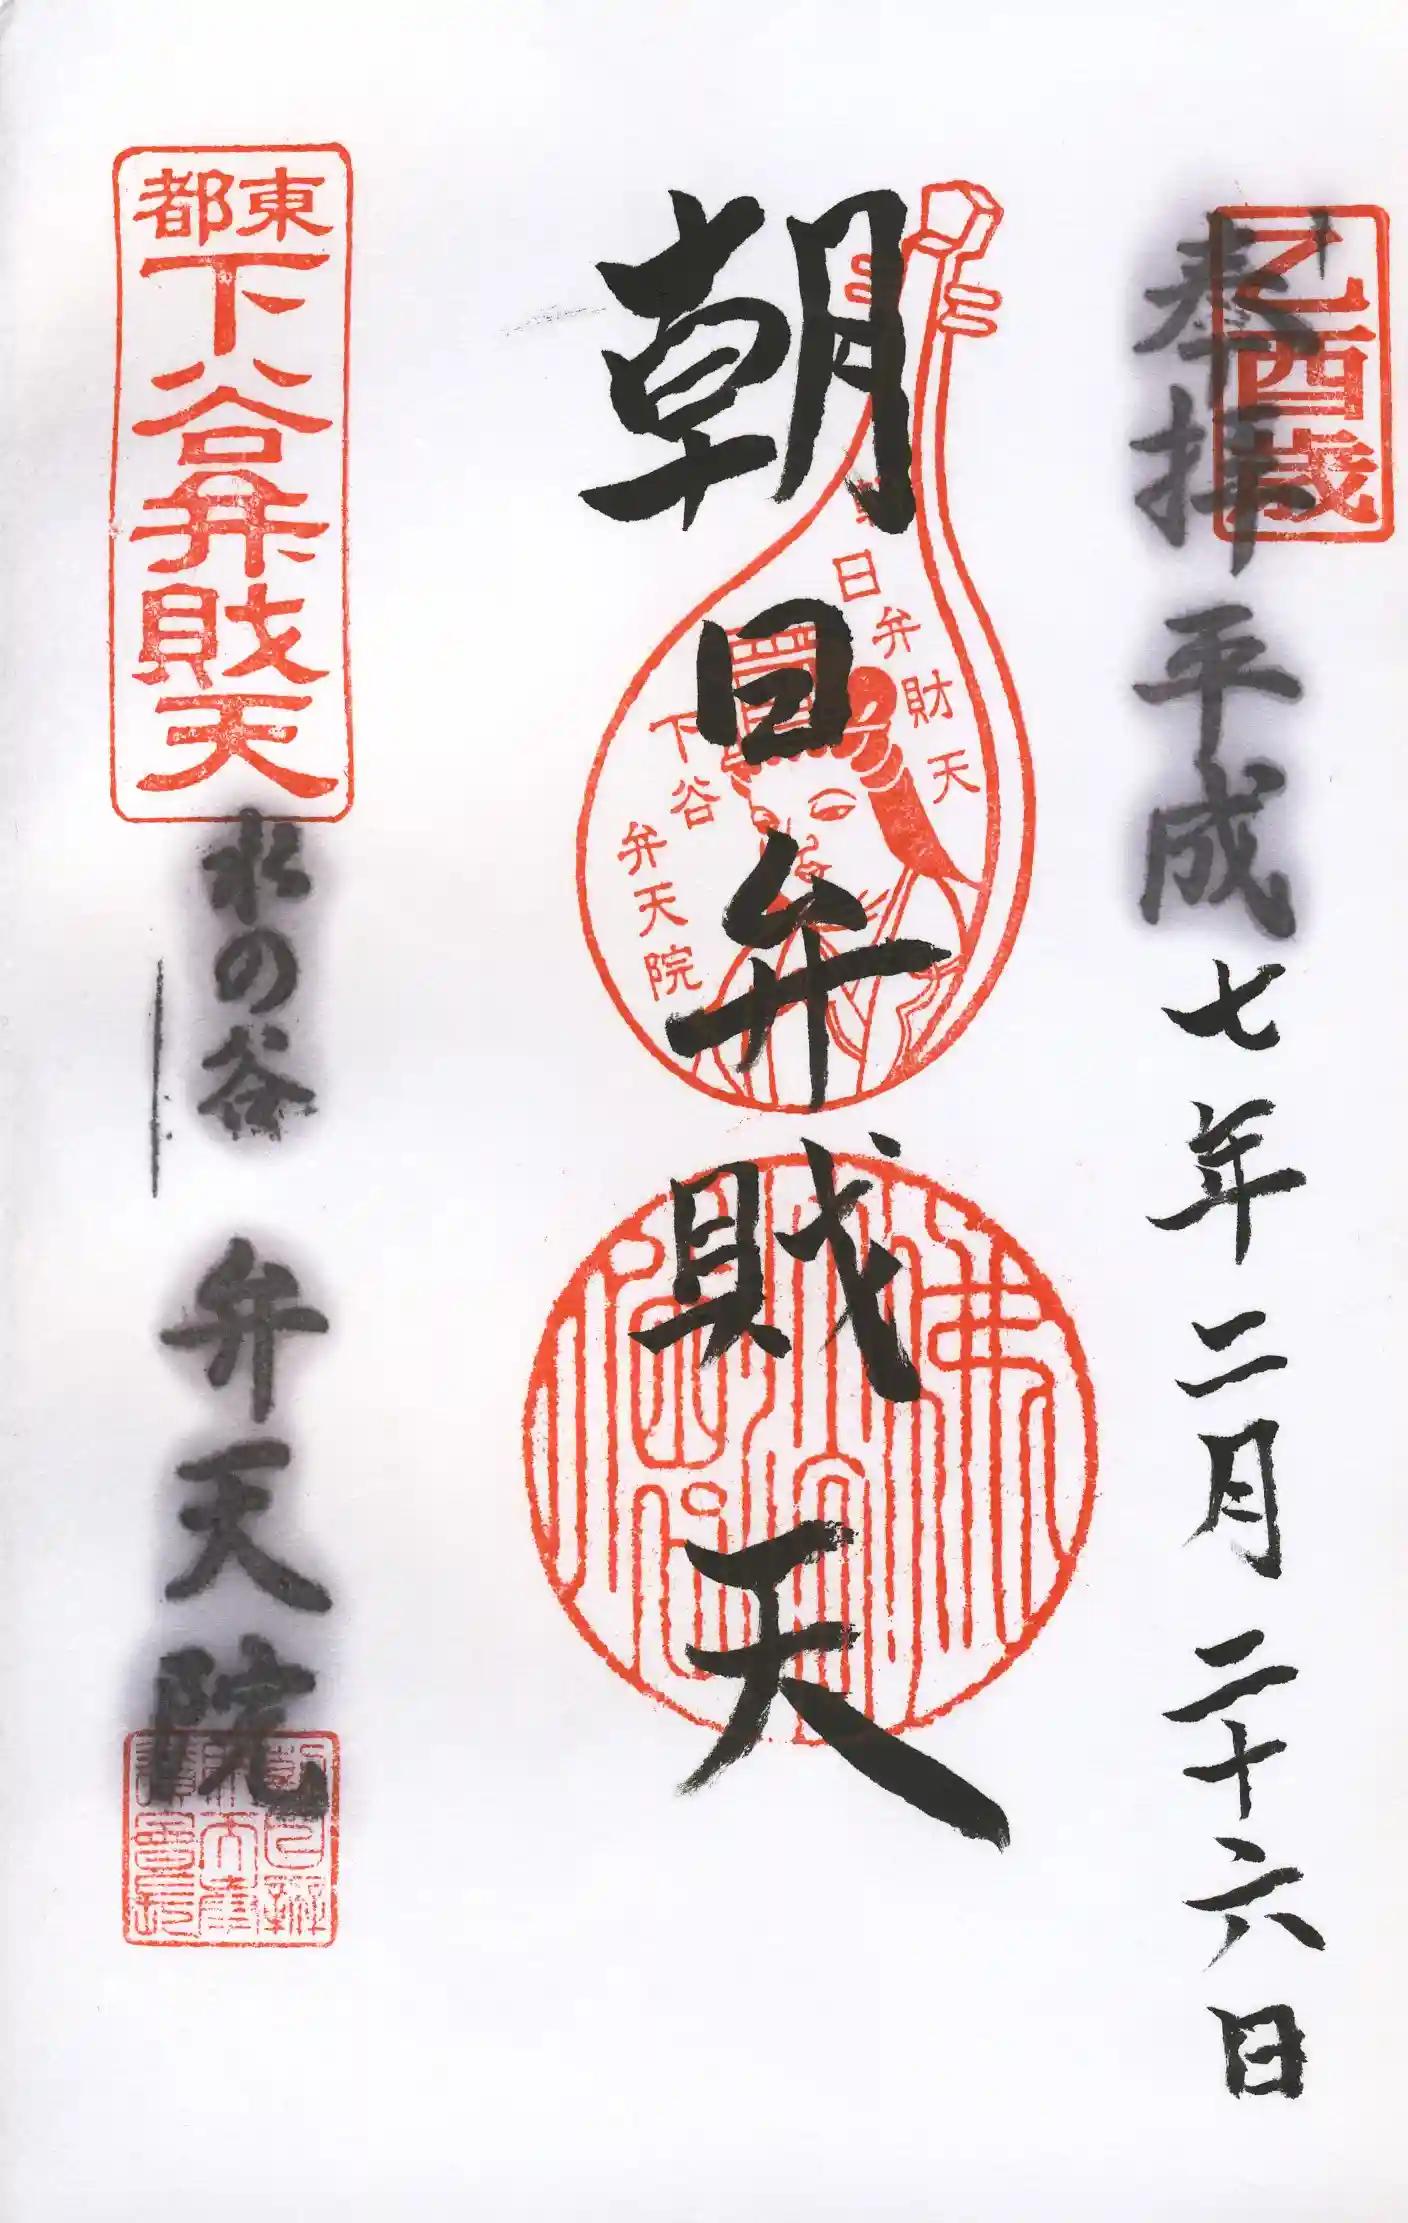 乙酉歳
奉拝 平成七年二月二十六日
朝日弁戝天
日弁財天
下谷弁天院
東都
下谷弁戝天
水の谷 弁天院